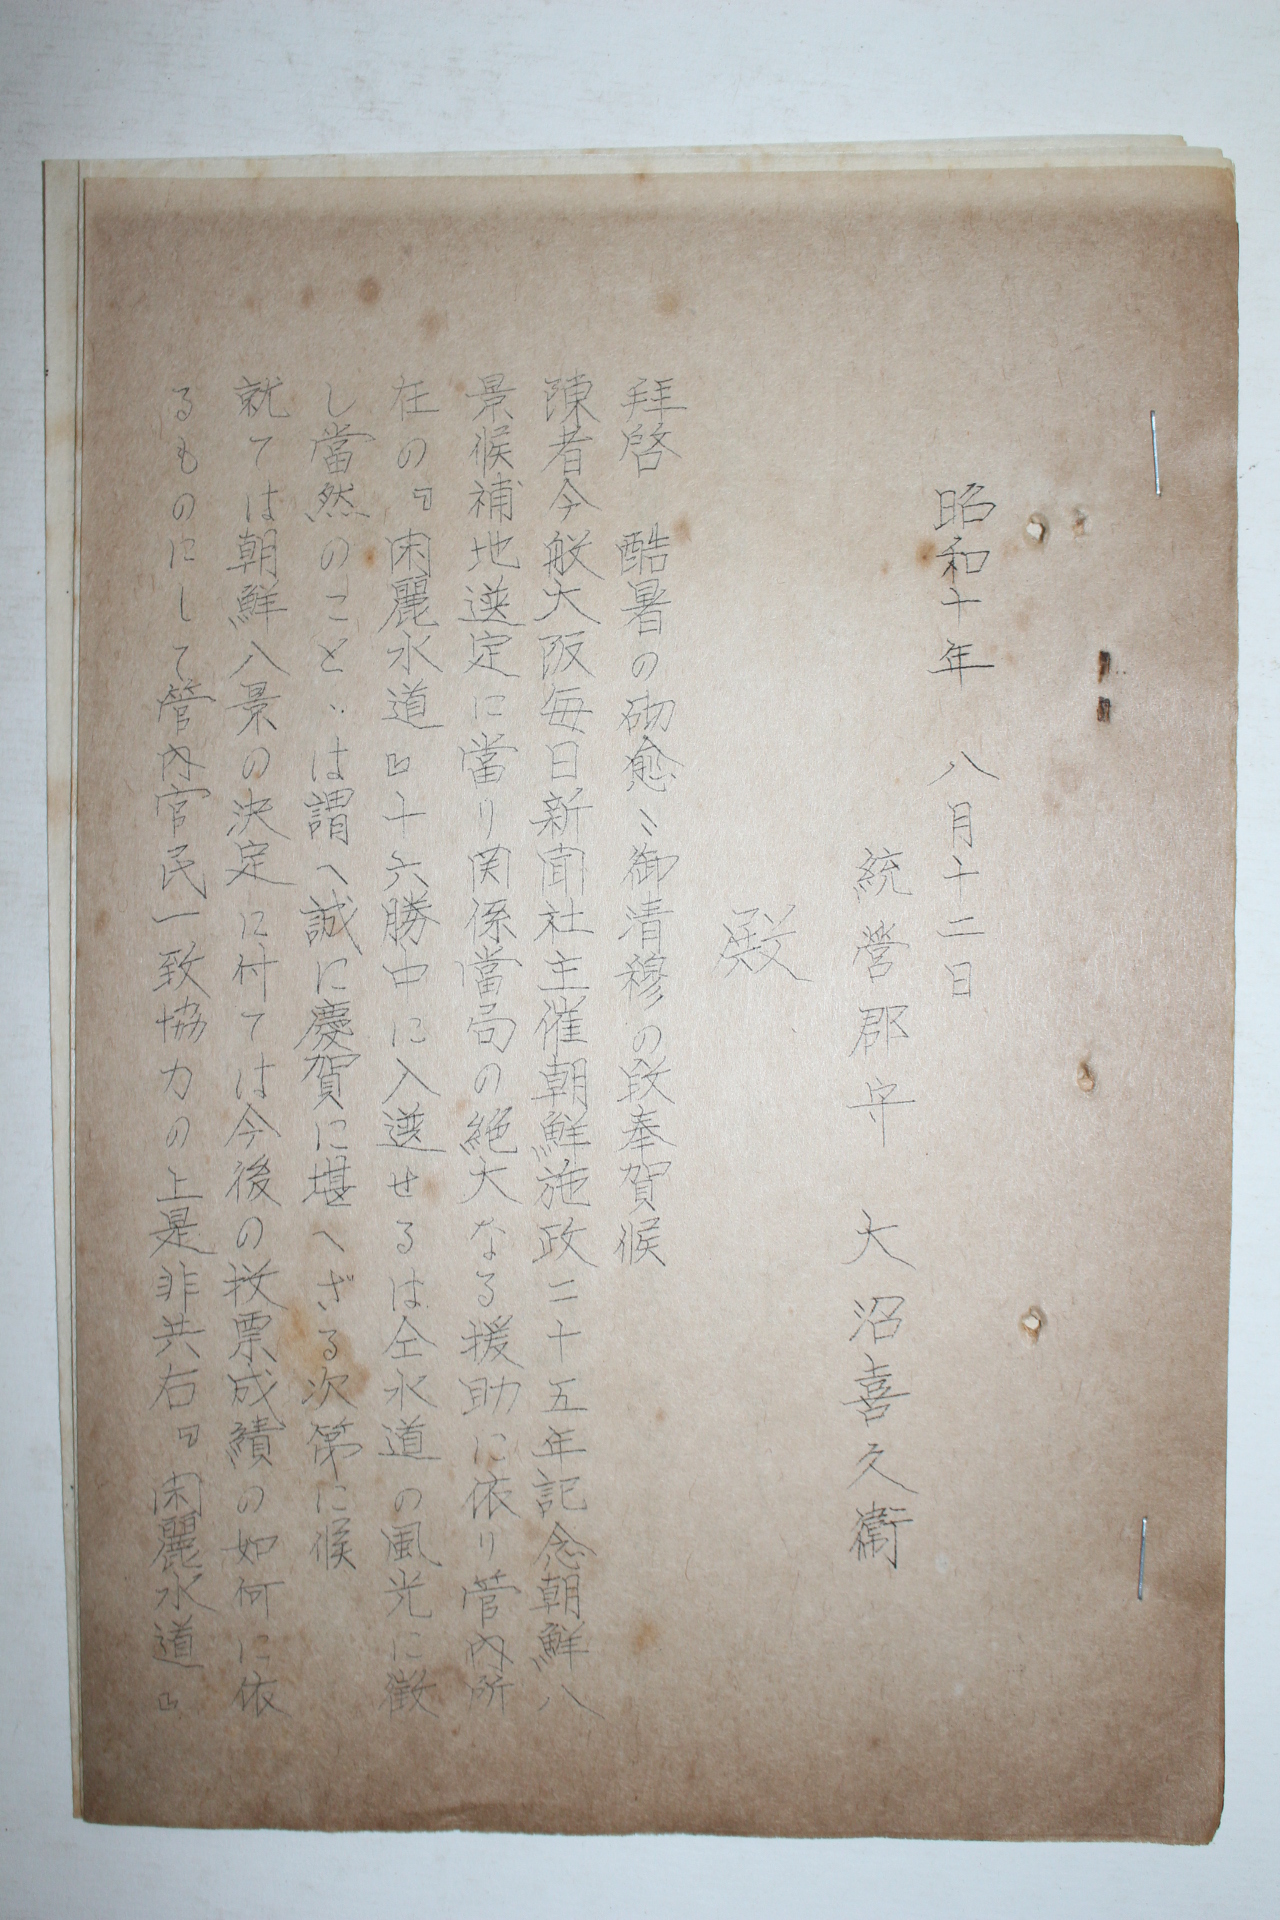 昭和十年　八月十二日
統營郡守　大沼喜久衞
殿
拜啓　酷暑の砌愈〻御清穆の段奉賀候
陳者今般大阪每日新聞社主催朝鮮施政二十五年記念朝鮮八
景候補地選定に當り関係當局の絶大なる援助に依り管內所
在の『閑麗水道』十六勝中に入選せるは仝水道の風光に徵
し當然のことゝは謂へ誠に慶賀に堪へざる次第に候
就ては朝鮮八景の決定に付ては今後の投票成績の如何に依
るものにして管內官民一致協力の上是非共右『閑麗水道』